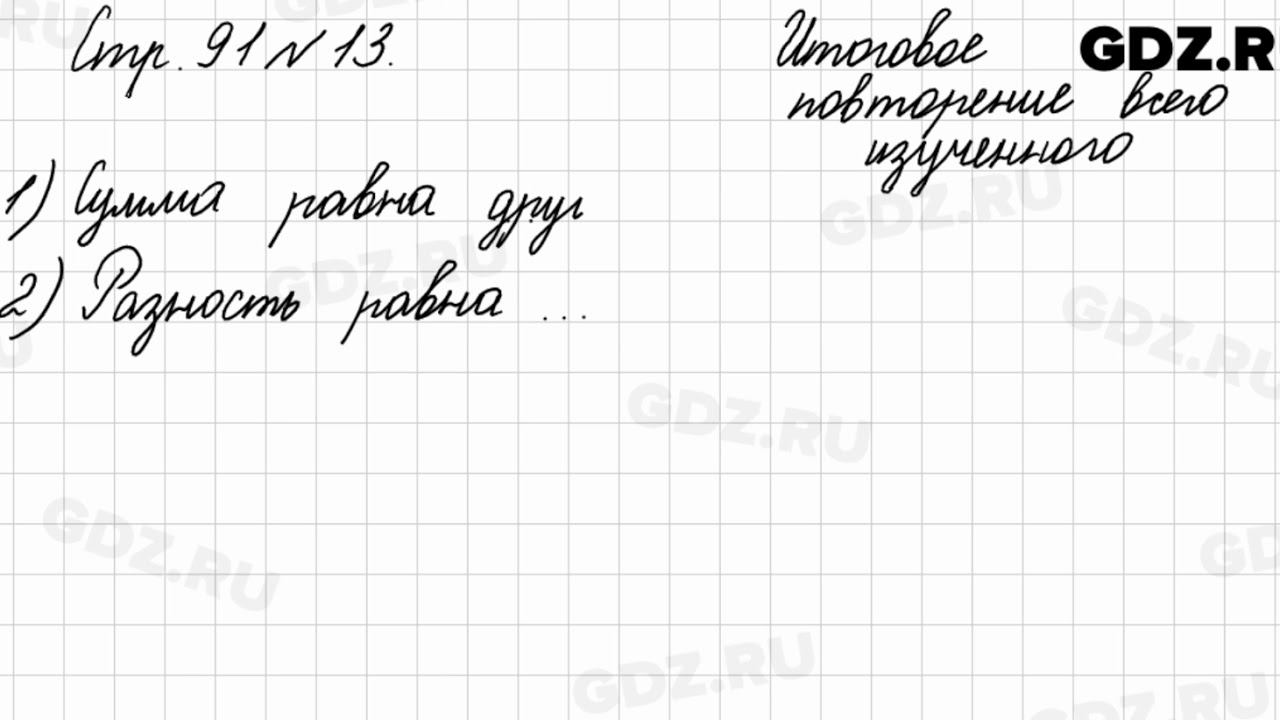 Стр. 91 № 13.
Итоговое
повторение всего
изученного
GDZ.R
1) Сумма равна друг
2) Разность равна ...
GDZ.RU
GDZ.RU
GDZ.RU
GDZ.RU
GDZ.RU
GDZ.RU